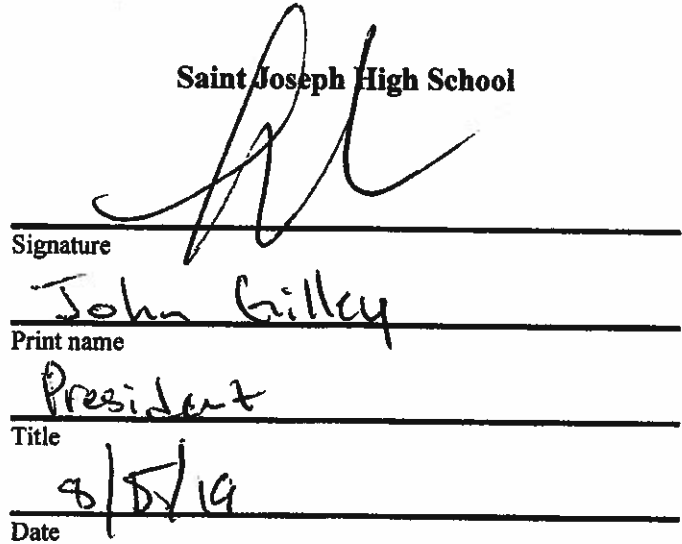 Saint Joseph High School
Signature
John Gilley
Print name
President
Title
8/5/19
Date